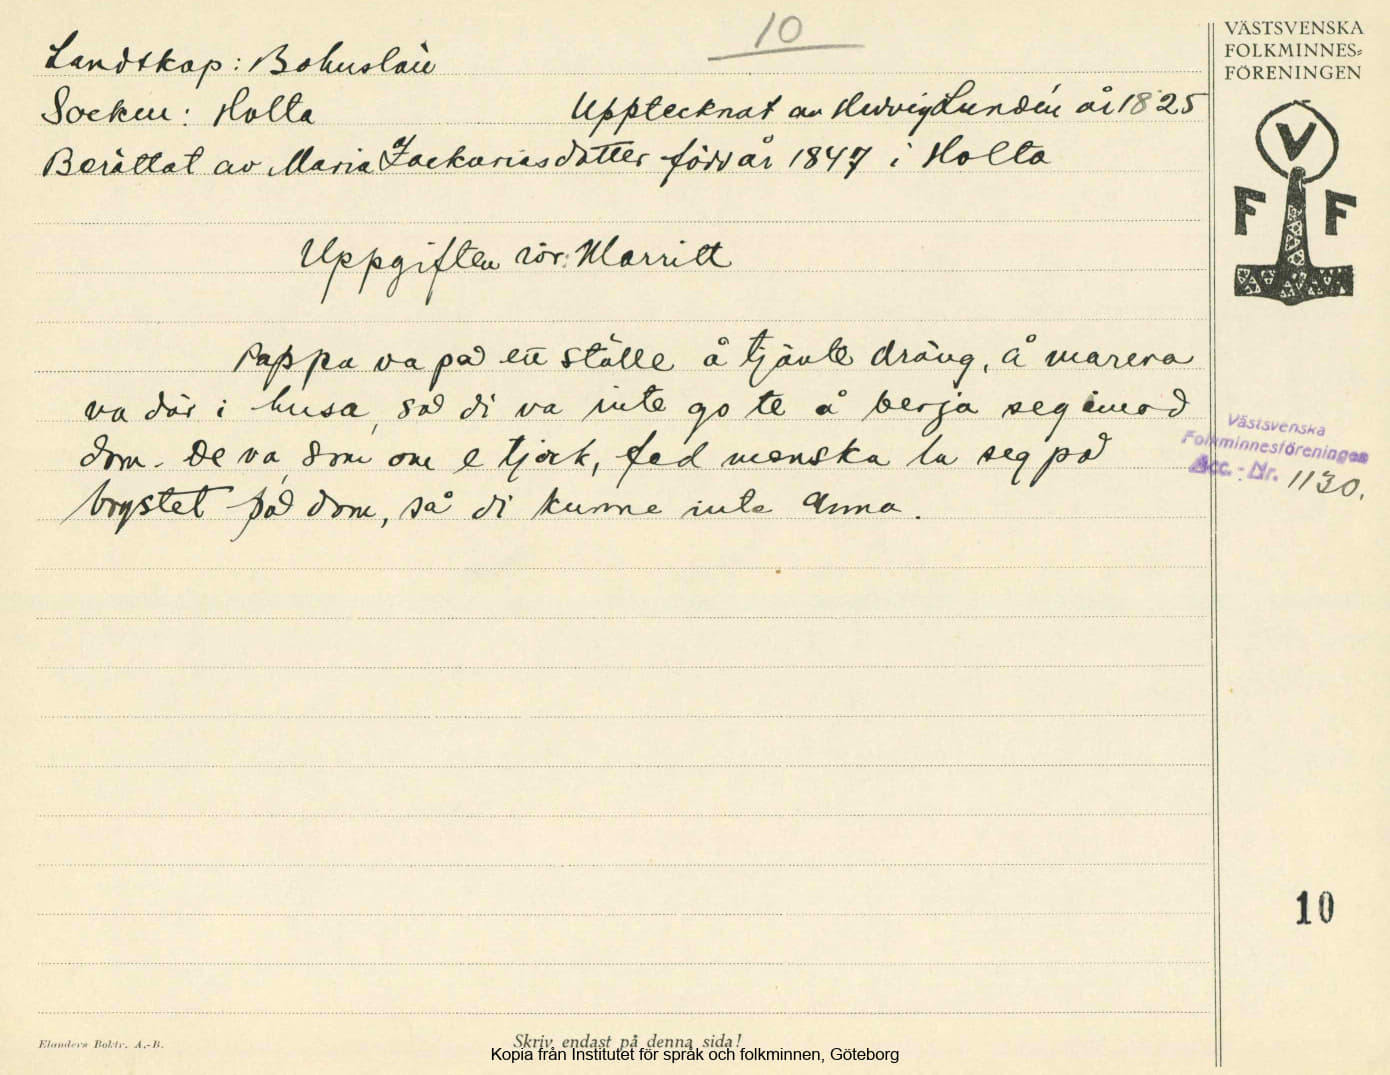 10
VÄSTSVENSKA
FOLKMINNES=
FÖRENINGEN
Landskap: Bohuslän
Socken: Holta Upptecknat av Hedvig Lundén år 1825
Berättat av Maria Zackariasdotter född år 1847 i Holta
V
F F
Uppgiften rör: Marritt
Pappa va på ett ställe å tjänte dräng, å marera
va där i husa, så di va inte go te å berja seg imod
dom. De va som om e tjock, fed menska la seg på
brystet på dom, så di kunne inte anna.
Västsvenska
Folkminnesföreningen
Acc. - Nr. 1130.
10
Elanders Boktr. A.-B.
Skriv endast på denna sida!
Kopia från Institutet för språk och folkminnen, Göteborg